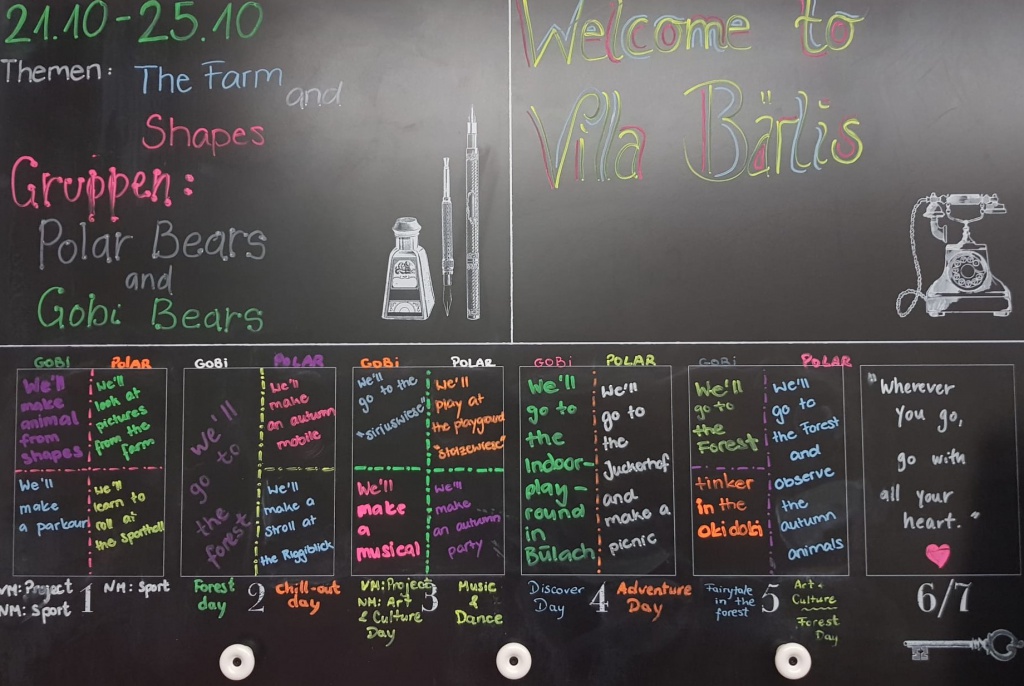 21.10-25.10
Themen: The Farm
and
Shapes
Gruppen:
Polar Bears
and
Gobi Bears
Welcome to
Villa Bärlis
GOBi
POLAR
We'll
make
animal
from
shapes
We'll
look at
pictures
from the
farm
We'll
make
a parkour
We'll
learn to
roll at
the sporthall
VM: Project
NM: Sport
1
NM: Sport
GOBi
POLAR
We'll
go to
the
forest
We'll
make
an autumn
mobile
We'll
make a
stroll at
the Riggiblick
Forest
day
2
Chill-out
day
GOBi
POLAR
We'll
go to the
"siriuswiese"
We'll
play at
the playgroud
"Stolzewiese"
We'll
make
a
musical
We'll
make
an autumn
party
VM: Project
NM: Art
& Culture
Day
3
Music
&
Dance
GOBi
POLAR
We'll
go to
the
Indoor-
play-
round
in
Bülach
We'll
go to
the
Juckerhof
and
make a
picnic
Discover
Day
4
Adventure
Day
GOBi
POLAR
We'll
go to
the
Forest
tinker
in the
okidoki
We'll
go to
the Forest
and
observe
the
autumn
animals
Fairytale
in the
forest
5
Art &
Culture
Forest
Day
"Wherever
you go,
go with
all your
heart."
6/7